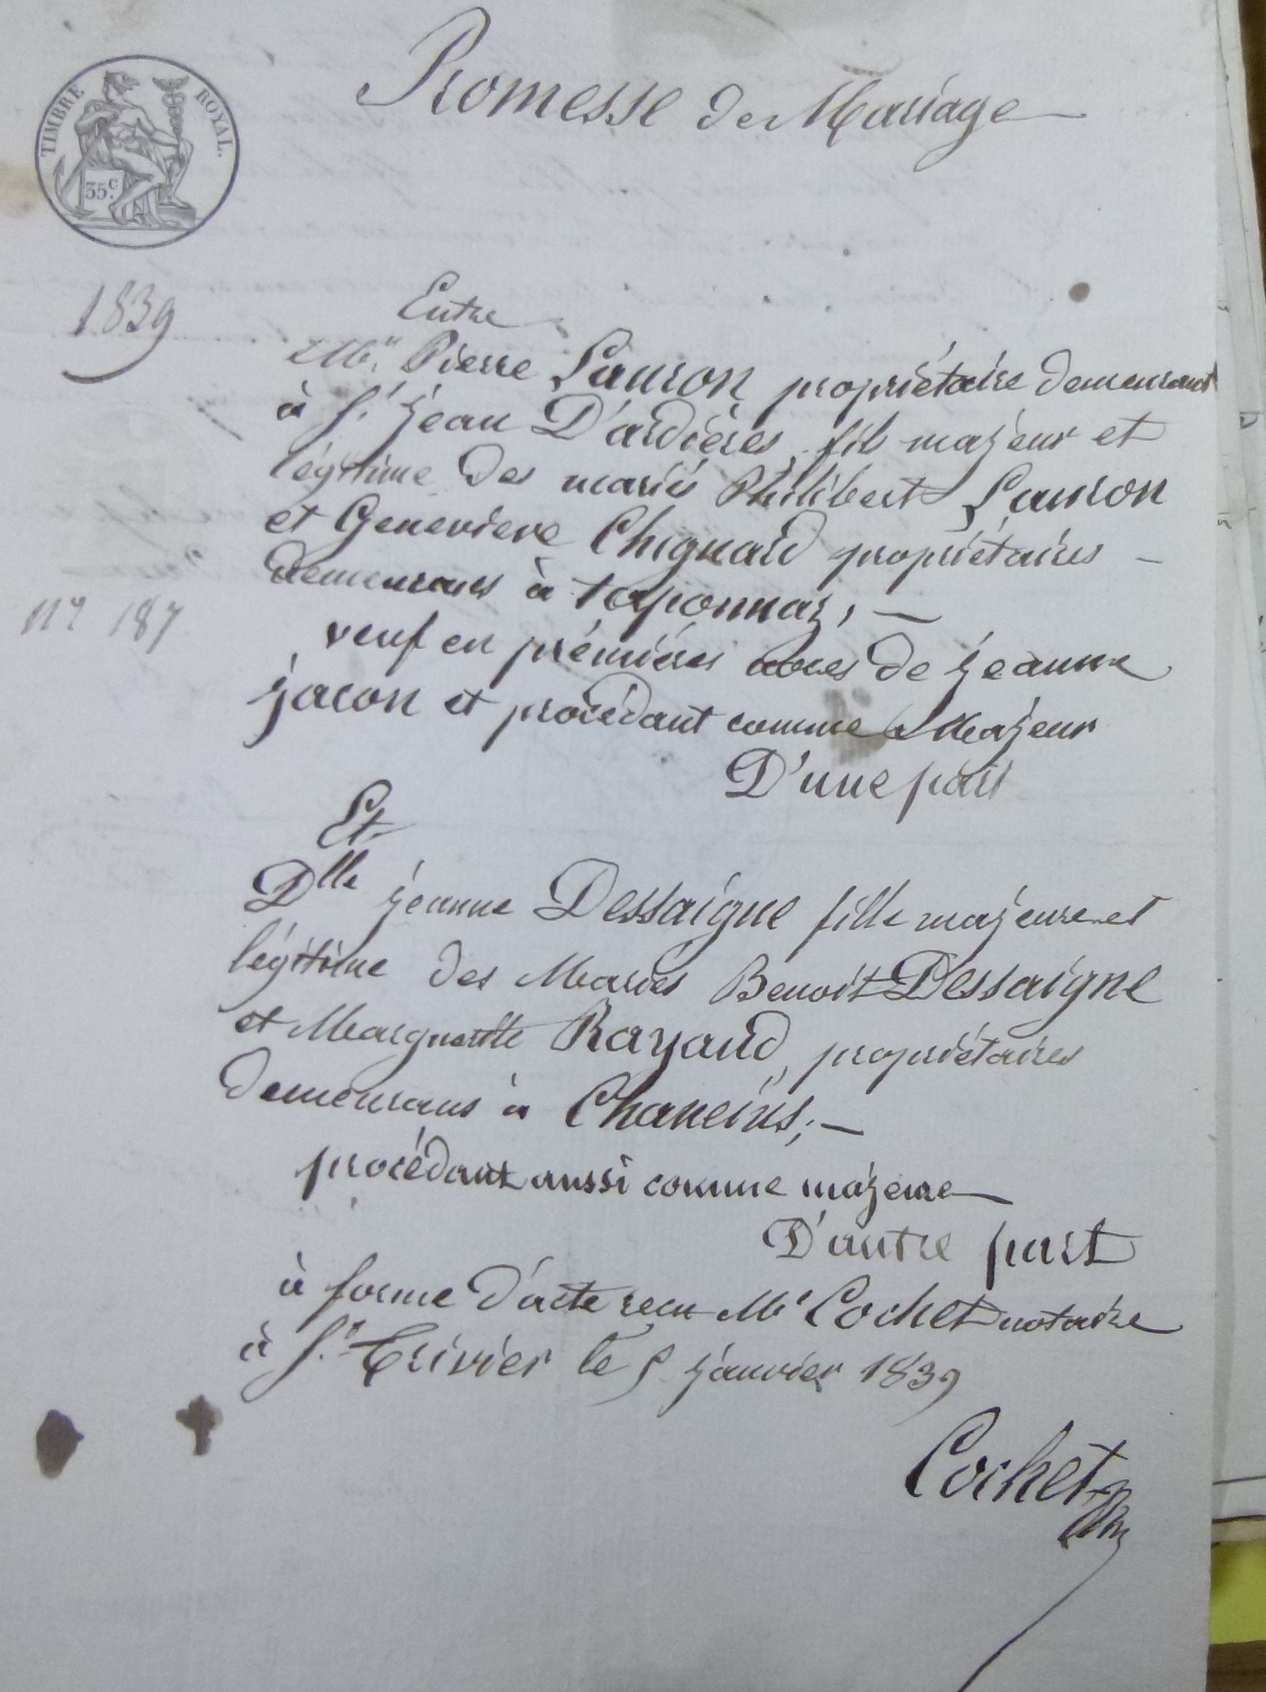 Promesse de Mariage
TIMBRE ROYAL.
35 c.
1839
Entre
Mr. Pierre Lauron propriétaire demeurant
à St. jean D'ardières, fils majeur et
légitime des mariés Philibert Lauron
et Genevieve Chignard propriétaires –
demeurans à taponnaz, —
No 187
veuf en prémières noces de jeanne
jacon et procédant comme Majeur
D'une part
Et
Dlle jeanne Dessaigne fille majeure et
légitime des Mariés Benoit Dessaigne
et Margueritte Rayaud, propriétaires
demeurans à Chaneins; —
procédant aussi comme majeure —
D'autre part
à forme d'acte recu Me Cochet notaire
à St. Trivier le 5 janvier 1839
Cochet